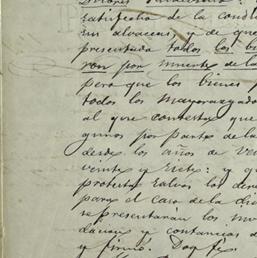 satisfecho de la cond
sus albaceas, y de que
presentada todos los bi
ron por muerte de la
pero que los bienes p
todos los mayorazgo
al que contesta que
guno por parte de la
desde los años de ve
veinte y siete: y qu
protesta salvos los de
para el caso de la di
se presentaran los mo
y constancias d
y firmó. Doy fé